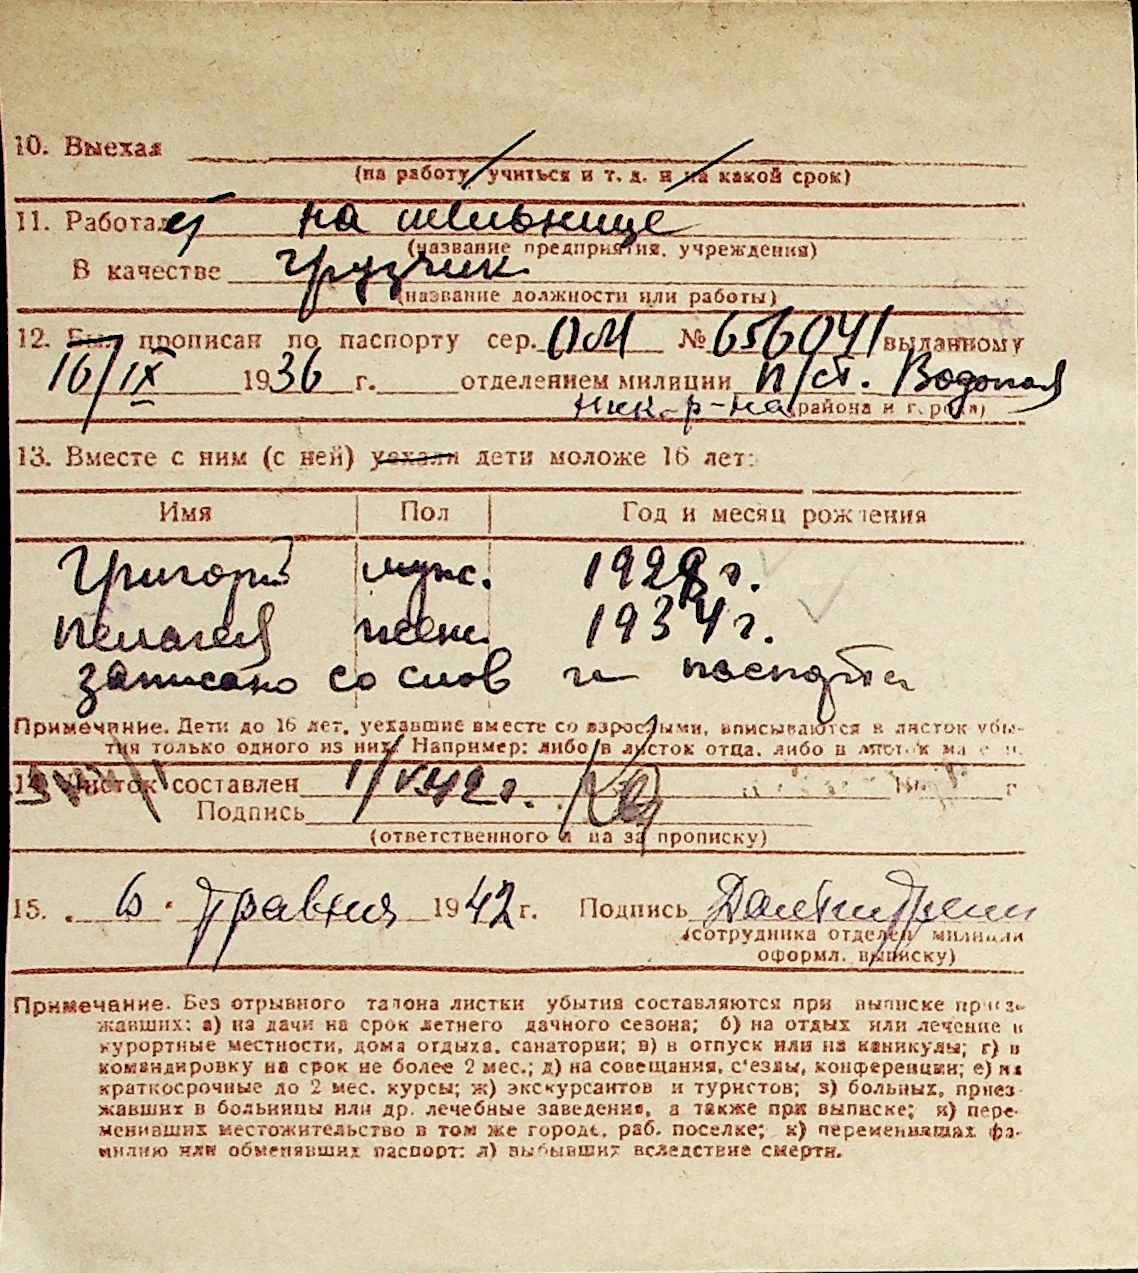 10. Выехал
(на работу учиться и т. д. и на какой срок)
11. Работает на мельнице
(название предприятия, учреждения)
В качестве грузчик
(название должности или работы)
12. Был прописан по паспорту сер. ОМ № 656041 выданному
16/IX 1936 г. отделением милиции п/ст. Водопой
Ник. р-на (района и города)
13. Вместе с ним (с ней) уехали дети моложе 16 лет:
Имя Пол Год и месяц рождения
Григорий муж. 1928 г.
Пелагея жен. 1934 г.
записано со слов и паспорта
Примечание. Дети до 16 лет, уехавшие вместе со взрослыми, вписываются в листок убы-
тия только одного из них. Например: либо в листок отца, либо в листок ма
14. Листок составлен 1/V 42 г. г
Подпись
(ответственного за прописку)
15. 6. травня 1942 г. Подпись
(сотрудника отделен милиции
оформл. выписку)
Примечание. Без отрывного талона листки убытия составляются при выписке приез-
жавших: а) на дачи на срок летнего дачного сезона; б) на отдых или лечение в
курортные местности, дома отдыха, санатории; в) в отпуск или на каникулы; г) в
командировку на срок не более 2 мес.; д) на совещания, с'езды, конференции; е) на
краткосрочные до 2 мес. курсы; ж) экскурсантов и туристов; з) больных, приез-
жавших в больницы или др. лечебные заведения, а также при выписке; и) пере-
менивших местожительство в том же городе, раб. поселке; к) переменивших фа-
милию или обменявших паспорт; л) выбывших вследствие смерти.